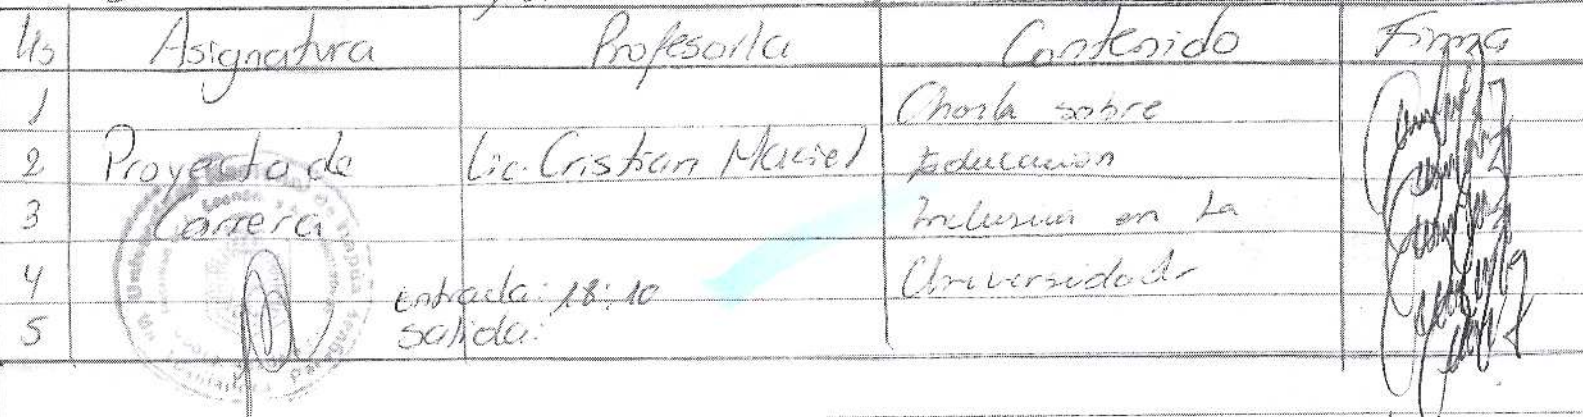 Hs Asignatura Profesor/a Contenido Firma
1 Charla sobre
2 Proyecto de Lic. Cristian Maciel Educacion
3 Carrera Inclusiva en La
4 entrada: 18:10 Universidad
5 salida: